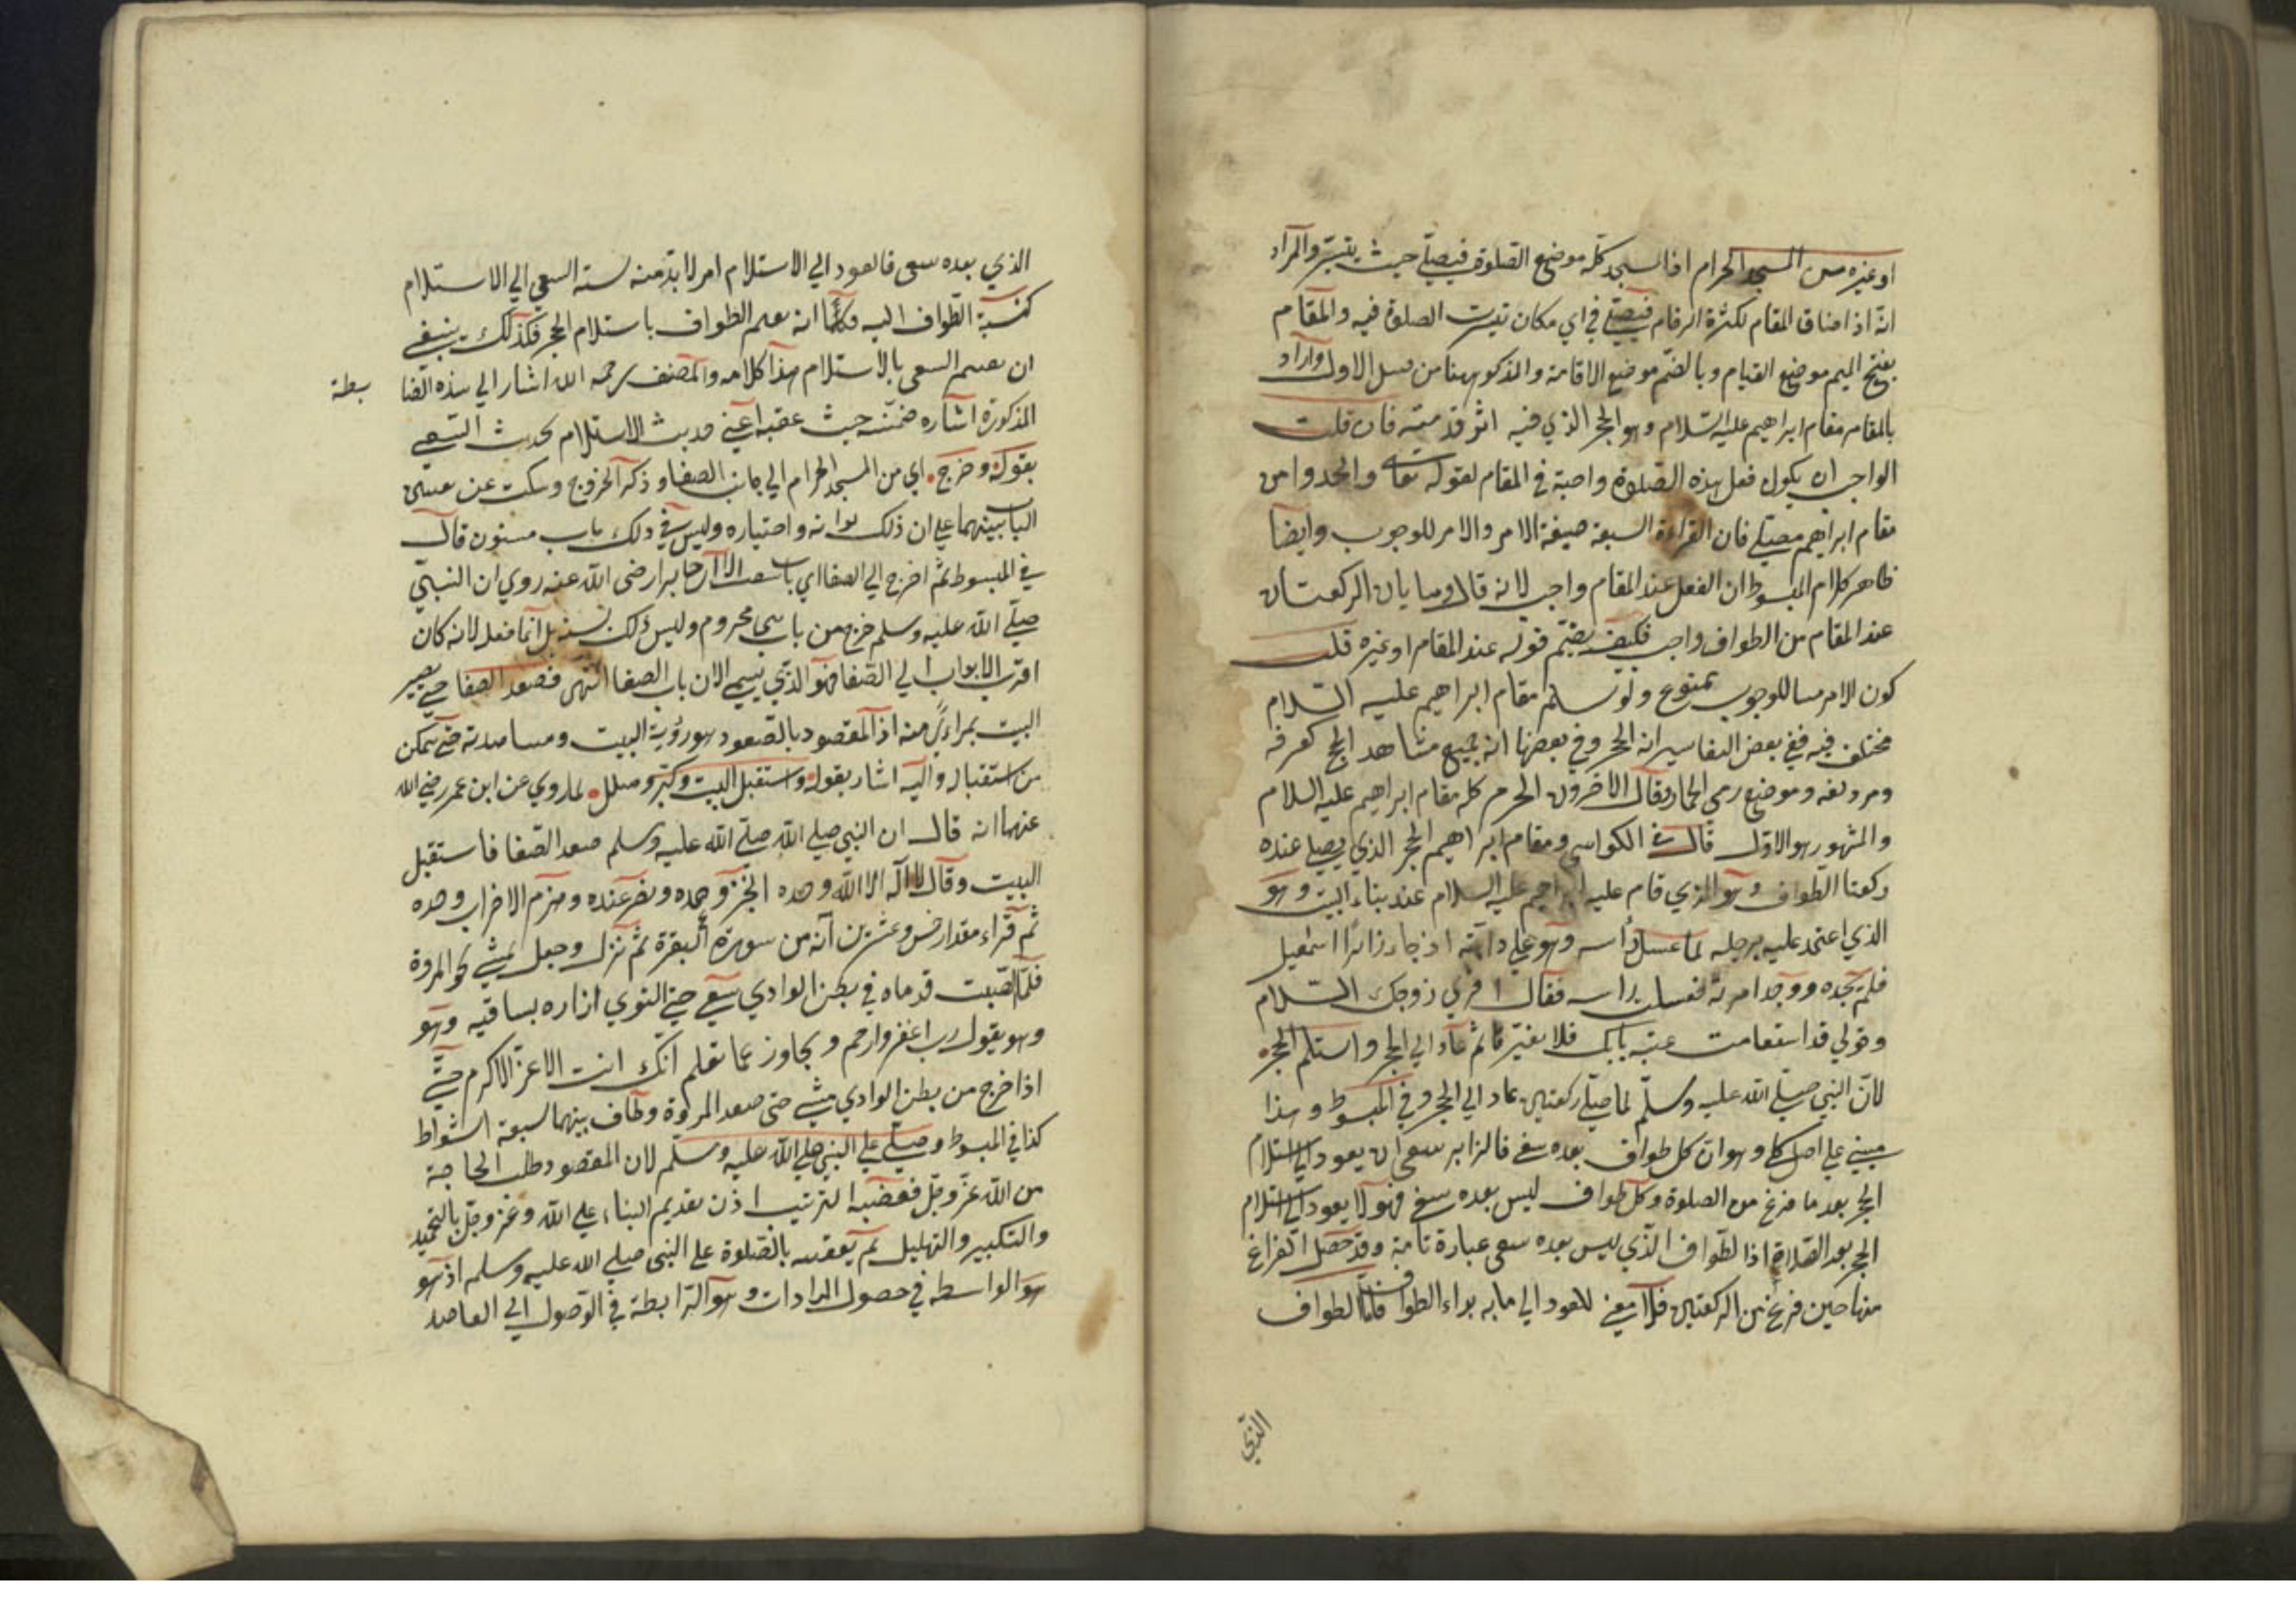 او غيره من المسجد الحرام اذ المسجد كله موضع الصلوة فيصلي حيث يتيسر والمراد
انه اذا ضاق المقام لكثرة الزحام فيصلي في اي مكان تيسرت الصلوة فيه والمقام
بفتح الميم موضع القيام وبالضم موضع الاقامة والمذكور ههنا من قبيل الاول واراد
بالمقام مقام ابراهيم عليه السلام وهو الحجر الذي فيه اثر قدميه فان قلت
الواجب ان يكون فعل هذه الصلوة واجبة في المقام لقوله تعالى واتخذوا من
مقام ابراهيم مصلي فان القراءة السبعة صيغة الامر والامر للوجوب وايضا
ظاهر كلام المبسوط ان الفعل عند المقام واجب لانه قال وهاتان الركعتان
عند المقام من الطواف واجب فكيف يصح قوله عند المقام او غيره قلت
كون الامر هنا للوجوب ممنوع ولو سلم مقام ابراهيم عليه السلام
مختلف فيه ففي بعض التفاسير انه الحجر وفي بعضها انه جميع مشاهد الحج كعرفة
ومزدلفه وموضع رمي الجمار وقال الاخرون الحرم كله مقام ابراهيم عليه السلام
والمشهور هو الاول قال في الكواشي ومقام ابراهيم الحجر الذي يصلي عنده
ركعتا الطواف وهو الذي قام عليه ابراهيم عليه السلام عند بناء البيت وهو
الذي اعتمد عليه برجله لما غسل رأسه وهو علي دابته اذ جاء زائرا اسمعيل
فلم يجده ووجد امرته فغسلت راسه فقال اقري زوجك السلام
وقولي قد استقامت عتبة بابك فلا تغيرها ثم عاد الي الحجر واستلم الحجر
لان النبي صلي الله عليه وسلم لما صلي ركعتين عاد الي الحجر وفي المبسوط وهذا
مبني علي اصل كلي وهو ان كل طواف بعده سعي فالزابر سعي ان يعود الي استلام
الحجر بعد ما فرغ من الصلوة وكل طواف ليس بعده سعي فهو لا يعود الي استلام
الحجر بعد الصلاة اذ الطواف الذي ليس بعده سعي عبارة تامة وقد حصل الفراغ
منها حين فرغ من الركعتين فلا معني للعود الي ما به بداء الطواف فاما الطواف
الذي
الذي بعده سعي فالعود الي الاستلام امر لا بد منه لسنة السعي الي الاستلام
كنسبة الطواف اليه فكما انه يفتتح الطواف باستلام الحجر فكذلك ينبغي
ان يفتتح السعي بالاستلام هذا كلامه والمصنف رحمه الله اشار الي هذه الضا
بطة
المذكورة اشاره ضمنية حيث عقب اعني حديث الاستلام بحديث السعي
بقوله وخرج اي من المسجد الحرام الي جانب الصفا وذكر الخروج وسكت عن تعيين
الباب تنبيها علي ان ذلك واختياره وليس في ذلك باب مسنون قال
في المبسوط ثم اخرج الي الصفا اي باب شئت الا ان جابرا رضي الله عنه روي ان النبي
صلي الله عليه وسلم خرج من باب بني مخزوم وليس ذلك بسنة بل انما فعل لانه كان
اقرب الابواب الي الصفا فهو الذي يسمي الان باب الصفا انتهي فصعد الصفا حتي يصير
البيت بمراءي منه اذ المقصود بالصعود هو رؤية البيت ومشاهدته حتي يتمكن
من استقباله واليه اشار بقوله واستقبل البيت وكبر وهلل لما روي عن ابن عمر رضي الله
عنهما انه قال ان النبي صلي الله صلي الله عليه وسلم صعد الصفا فاستقبل
البيت وقال لا اله الا الله وحده انجز وعده ونصر عبده وهزم الاحزاب وحده
ثم قراء مقدار خمس وعشرين آية من سورة البقرة ثم نزل وجعل يمشي نحو المروة
فلما انصبت قدماه في بطن الوادي سعي حتي التوي ازاره بساقيه وهو
وهو يقول رب اغفر وارحم وتجاوز عما تعلم انك انت الاعز الاكرم حتي
اذا خرج من بطن الوادي مشي حتي صعد المروة وطاف بينهما سبعة اشواط
كذا في المبسوط وصلي علي النبي صلي الله عليه وسلم لان المقصود طلب الحاجة
من الله عز وجل فقضية الترتيب اذن تقديم الثناء علي الله وعز وجل بالتحميد
والتكبير والتهليل ثم يعقبه بالصلوة علي النبي صلي الله عليه وسلم اذ هو
هو الواسطه في حصول المرادات وهو الرابطة في الوصول الي المقاصد